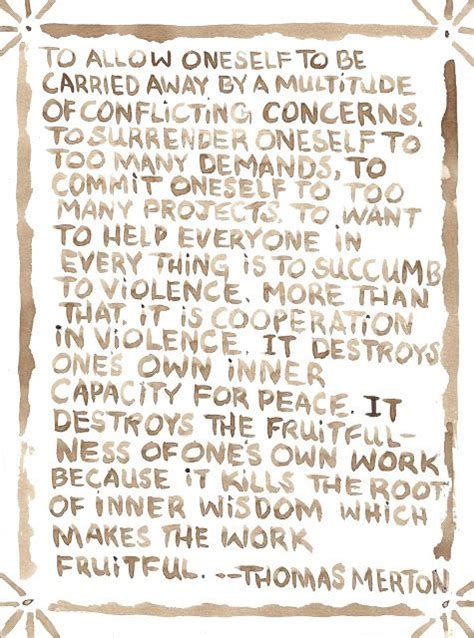 TO ALLOW ONESELF TO BE
CARRIED AWAY BY A MULTITUDE
OF CONFLICTING CONCERNS,
TO SURRENDER ONESELF TO
TOO MANY DEMANDS, TO
COMMIT ONESELF TO TOO
MANY PROJECTS, TO WANT
TO HELP EVERYONE IN
EVERY THING IS TO SUCCUMB
TO VIOLENCE. MORE THAN
THAT, IT IS COOPERATION
IN VIOLENCE. IT DESTROYS
ONE'S OWN INNER
CAPACITY FOR PEACE. IT
DESTROYS THE FRUITFUL-
NESS OF ONE'S OWN WORK
BECAUSE IT KILLS THE ROOT
OF INNER WISDOM WHICH
MAKES THE WORK
FRUITFUL. --THOMAS MERTON